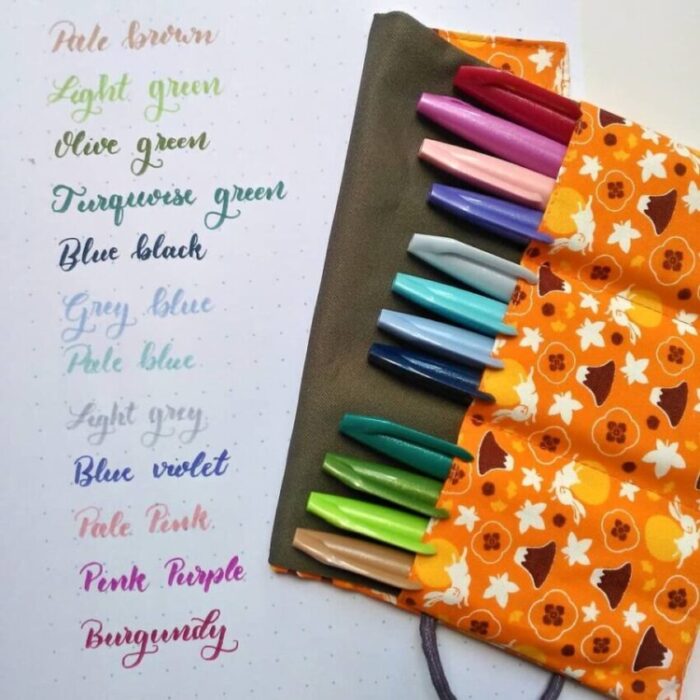 Pale brown
Light green
Olive green
Turquoise green
Blue black
Grey blue
Pale blue
Light grey
Blue violet
Pale Pink
Pink Purple
Burgundy